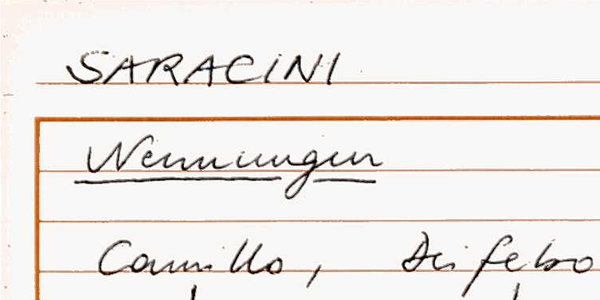 SARACINI
Nennungen
Camillo, Deifebo